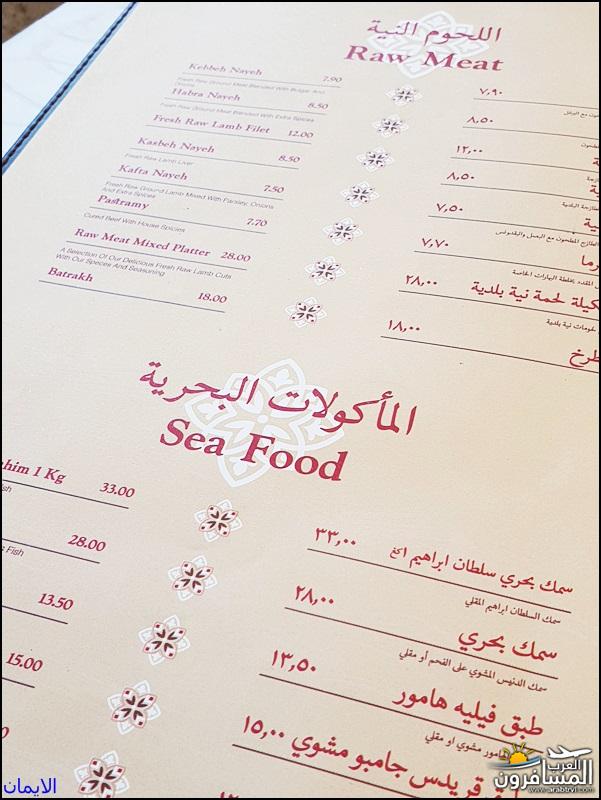 اللحوم النية
Raw Meat
Kebbeh Nayeh 7.90
Fresh Raw Ground Meat Blended With Bulgar And Onions
Habra Nayeh 8.50
Fresh Raw Ground Meat Blended With Extra Spices
Fresh Raw Lamb Filet 12.00
Kasbeh Nayeh 8.50
Fresh Raw Lamb Liver
Kafta Nayeh 7.50
Fresh Raw Ground Lamb Mixed With Parsley, Onions
And Extra Spices
Pastramy 7.70
Cured Beef With House Spicies
Raw Meat Mixed Platter 28.00
A Selection Of Our Delicious Fresh Raw Lamb Cuts
With Our Speces And Seasoning
Batrakh 18.00
٧,٩٠
٨,٥٠
١٢,٠٠
٨,٥٠
٧,٥٠
٧,٧٠
٢٨,٠٠
كيلة لحمة نية بلدية
١٨,٠٠
طرخ
المأكولات البحرية
Sea Food
ahim 1 Kg 33.00
28.00
Fish
13.50
15.00
سمك بحري سلطان ابراهيم ١كغ ٣٣,٠٠
سمك السلطان ابراهيم المقلي
سمك بحري ٢٨,٠٠
سمك الدنيس المشوي على الفحم أو مقلي
طبق فيليه هامور ١٣,٥٠
هامور مشوي او مقلي
قريدس جامبو مشوي ١٥,٠٠
الايمان
العرب
المسافرون
www.arabtrvl.com